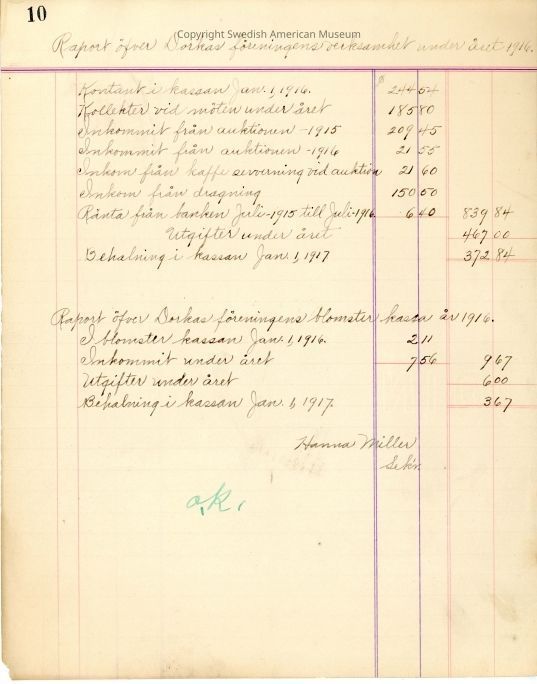 10
Copyright Swedish American Museum
Raport öfver Dorkas föreningens verksamhet under året 1916.
Kontant i kassan Jan. 1, 1916. $ 244 54
Kollekter vid möten under året 185 80
Inkommit från auktionen - 1915 209 45
Inkommit från auktionen - 1916 21 55
Inkom från kaffe servering vid auktion 21 60
Inkom från dragning 150 50
Ränta från banken Juli - 1915 till Juli - 1916 6 40 839 84
Utgifter under året 467 00
Behalning i kassan Jan. 1, 1917 372 84
Raport öfver Dorkas föreningens blomster kassa år 1916.
I blomster kassan Jan. 1, 1916. 2 11
Inkommit under året 7 56 9 67
Utgifter under året 6 00
Behalning i kassan Jan. 1, 1917. 3 67
Hanna Miller
Sek'r.
o.k.